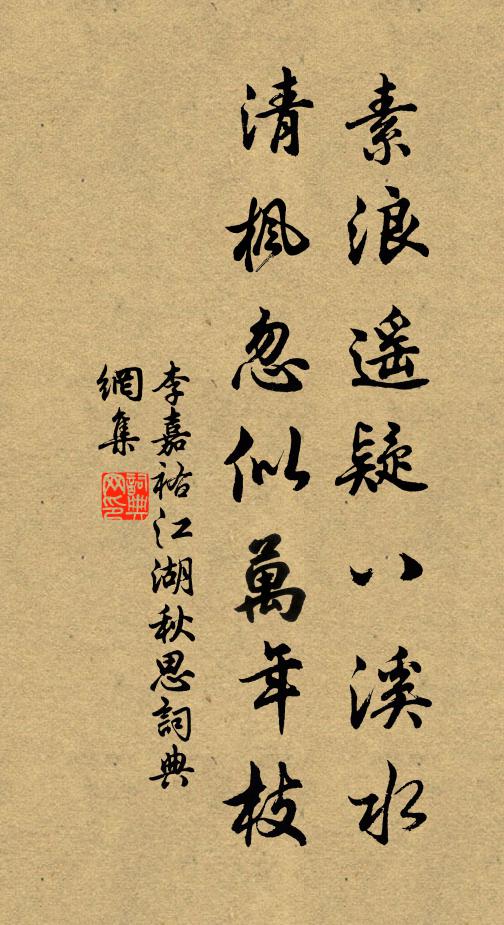 素浪遥疑八溪水
清枫忽似萬年枝
李嘉祐江湖秋思詞典
網集
詞典网印